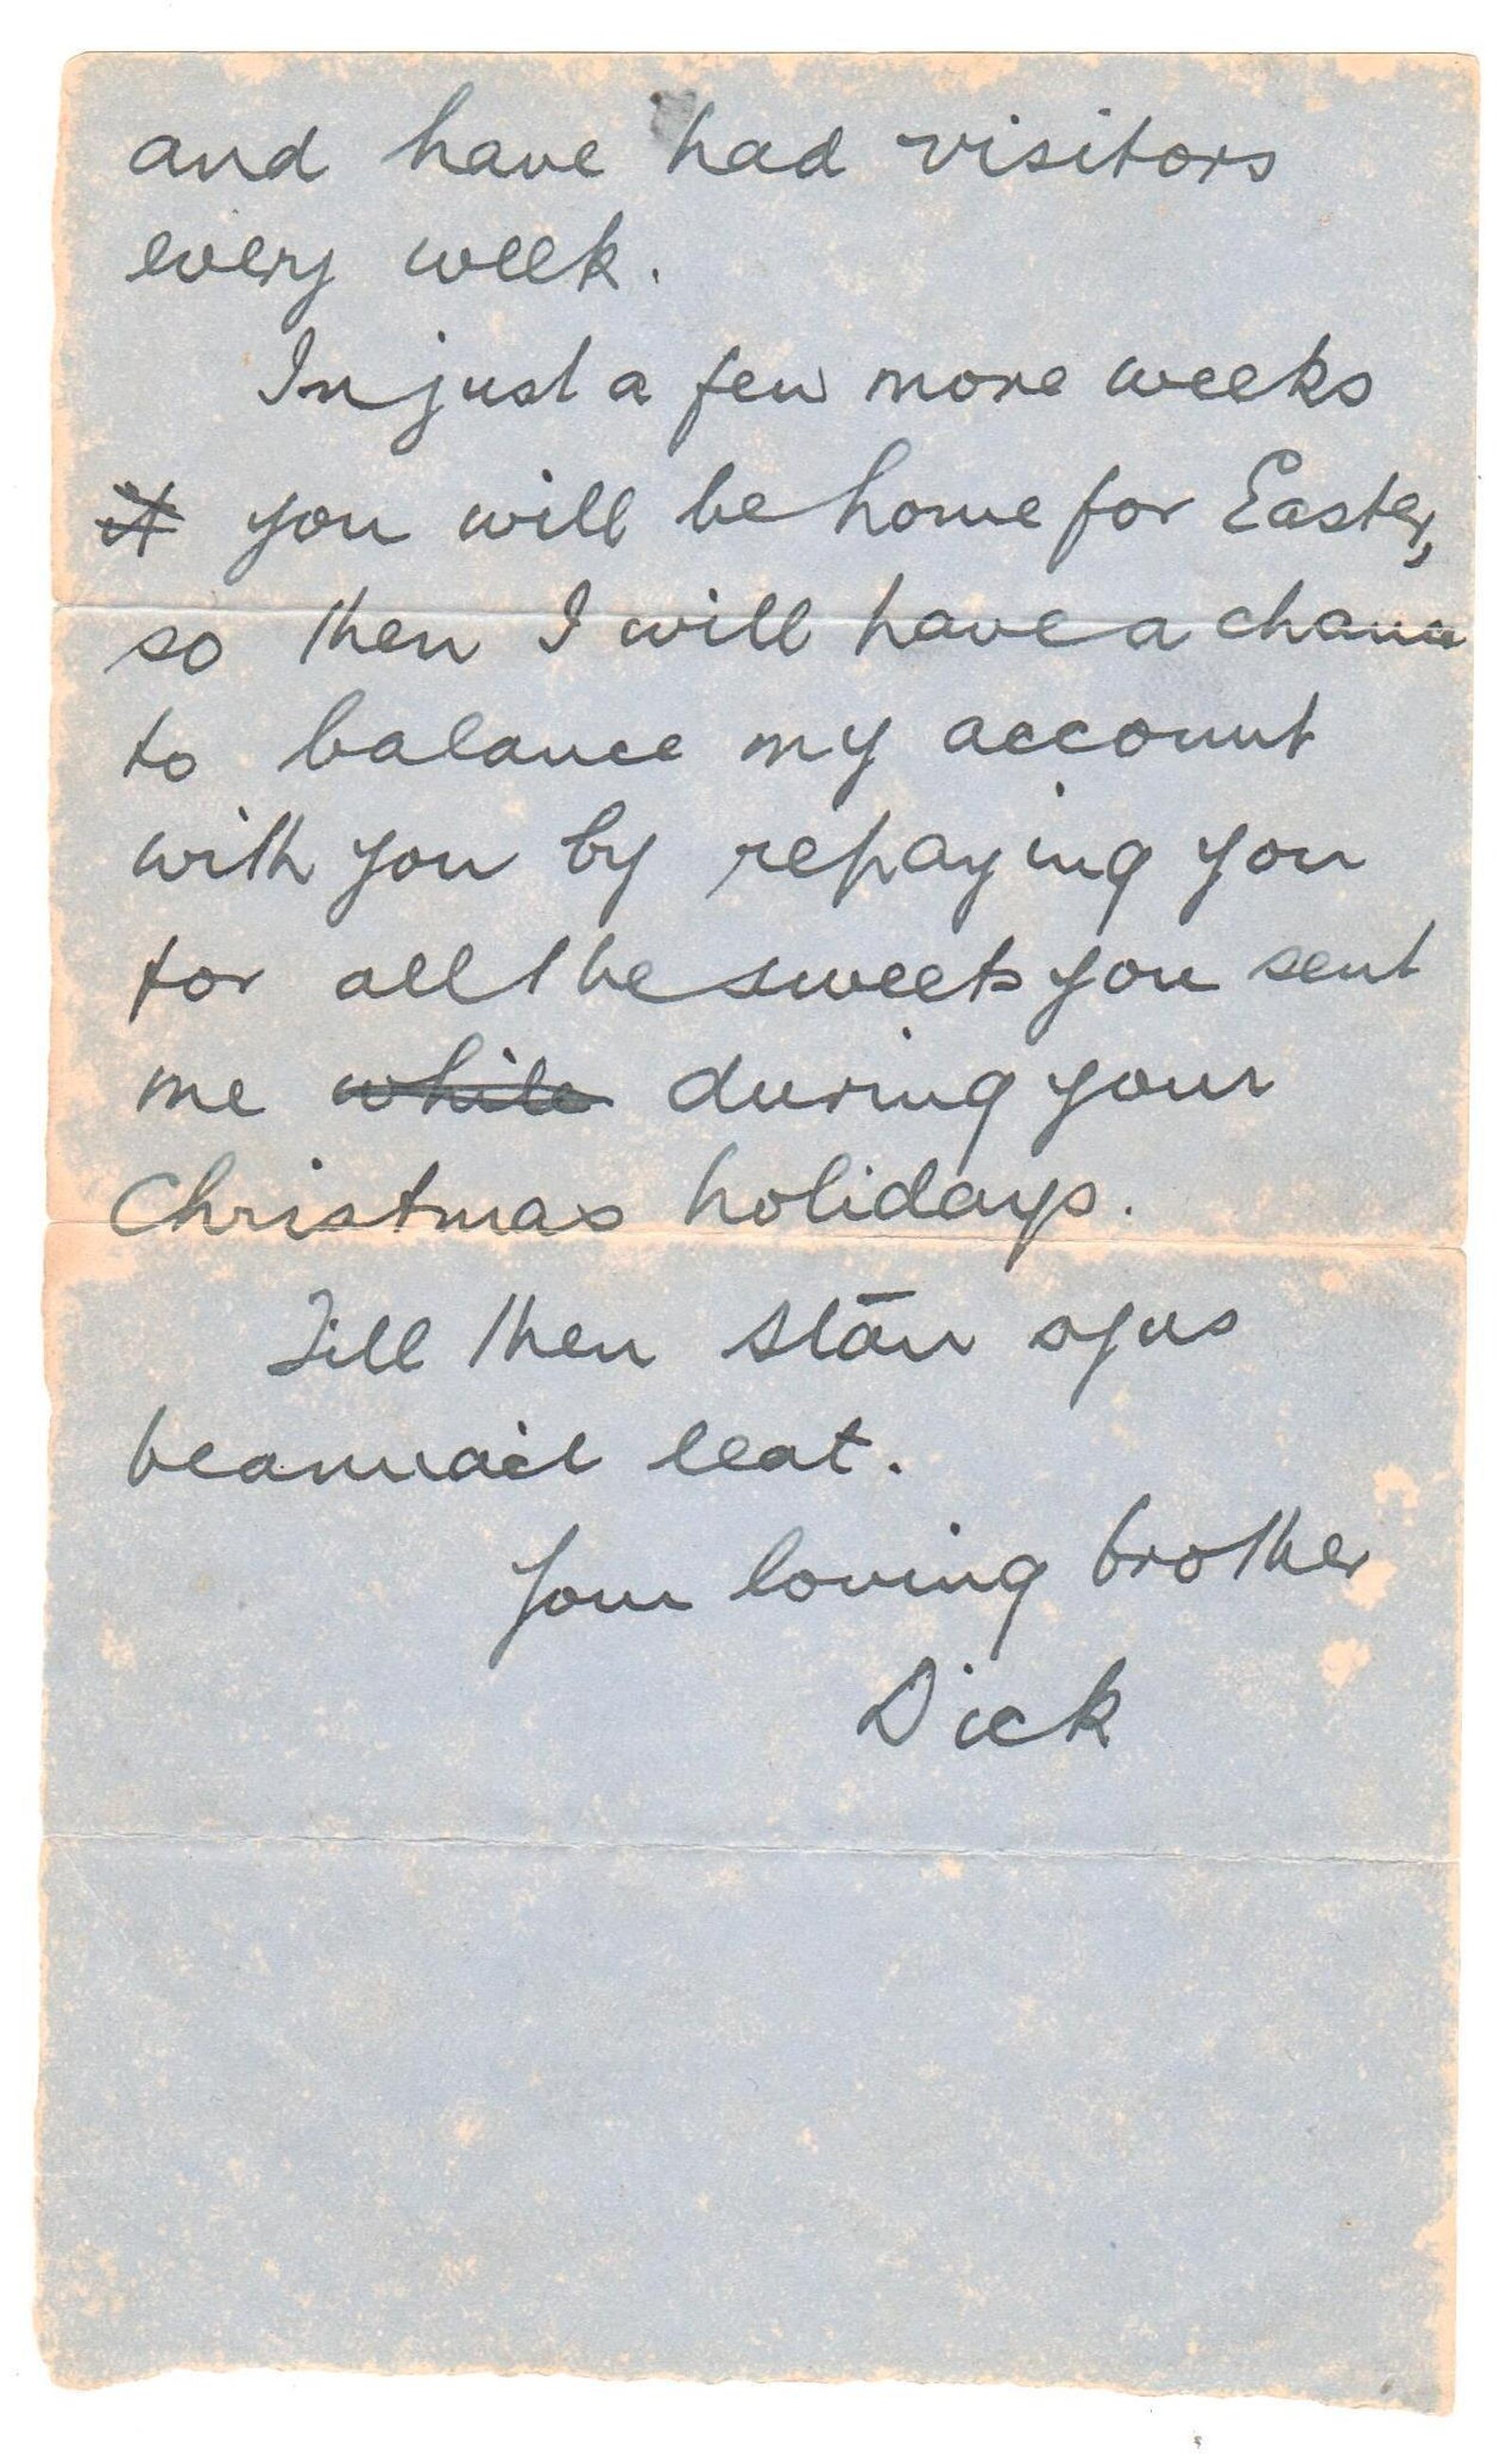 and have had visitors
every week.
In just a few more weeks
it you will be home for Easter,
so then I will have a chance
to balance my account
with you by repaying you
for all the sweets you sent
me while during your
Christmas holidays.
Till then slān agus
beannact leat.
Your loving brother
Dick